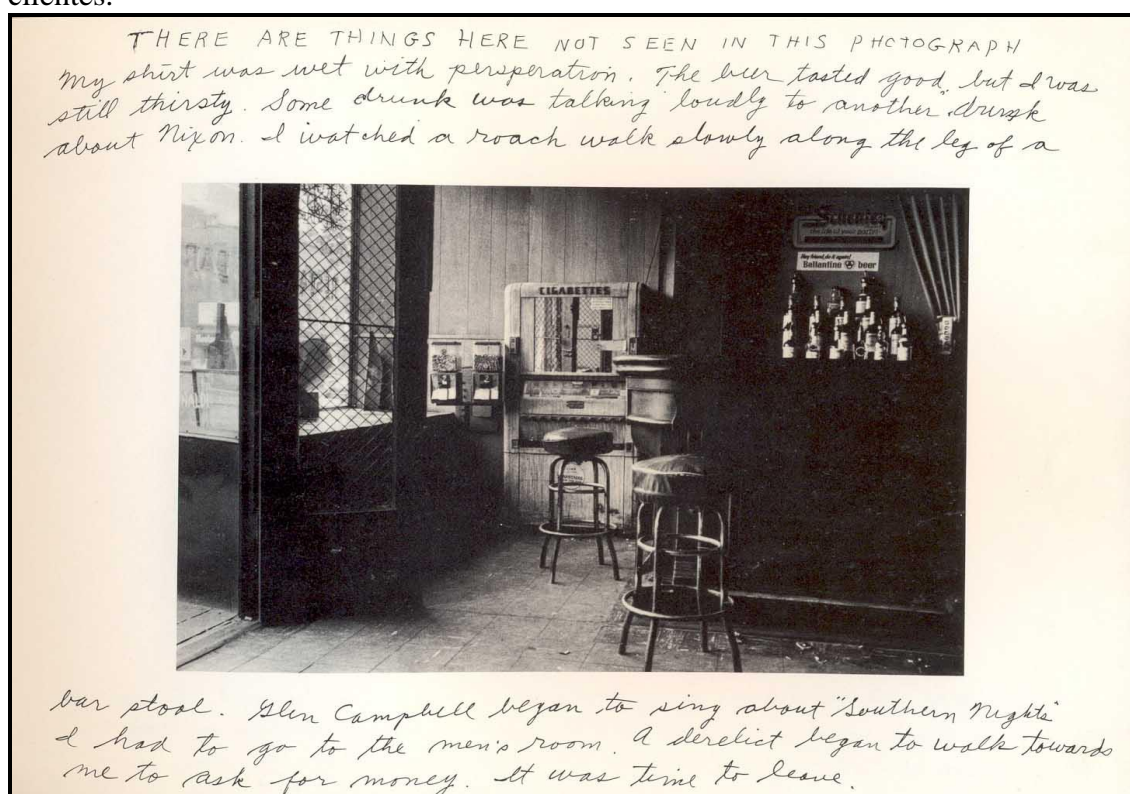 clientes.
THERE ARE THINGS HERE NOT SEEN IN THIS PHOTOGRAPH
My shirt was wet with persperation. The beer tasted good, but I was
still thirsty. Some drunk was talking loudly to another drunk
about Nixon. I watched a roach walk slowly along the leg of a
Schenley
CIGARETTES
Ballantine beer
bar stool. Glen Campbell began to sing about "Southern Nights"
I had to go to the men's room. A derelict began to walk towards
me to ask for money. It was time to leave.